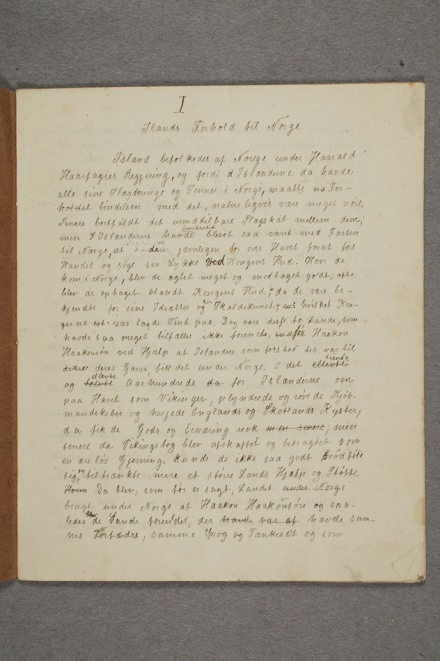 I
Islands Forhold til Norge
Island befolkedes af Norge under Harald
Haarfagres Regjering, og fordi Islænderne da havde
alle sine Slægtninge og Venner i Norge, maatte For-
holdet med det, naturligvis være meget nöie.
Senere bortfaldt det umiddelbare Slægtskab mellem dem;
men Islænderne havde blevet saa vant med Farten
til Norge, at den jævnligen for var Havet forat före
Handel og söge sin Lykke ved Kongens Hird. Hvor de
kom i Norge, blev de agtet meget og modtaget godt; ofte
blev de optaget blandt Kongens Hird, da de vare be-
kjendte for sine Idrætter og Skaldekunst, hvilket Kon-
gerne lagde Vind paa. Dog vare disse to Lande, som
havde saa meget tilfælles ikke forenede, Haakon
Haakonsön ved Hjælp af Islændere, som var til
deres Gavn, fik det under Norge. I det
og Aarhundrede for Islænderne om
paa Havet som Vikinger, plyndrede og röve de Kjöb-
mandsskibe og hergede Englands og Skotlands Kyster,
da fik de Gods og Ernæring nok men
senere da Vikingetog blev afskaffet og betragtet som
en æreløs Gjerning, kunde de ikke saa godt brödföde
sig, tiltrængte mere et större Lands Hjælp og Stötte.
Da blev, som för er sagt, Landet under Norge
bragt under Norge af Haakon Haakonsön og saa-
ledes de Lande forenet, der var af havde sam-
me Forfædre, samme Sprog og Tankesæt og som